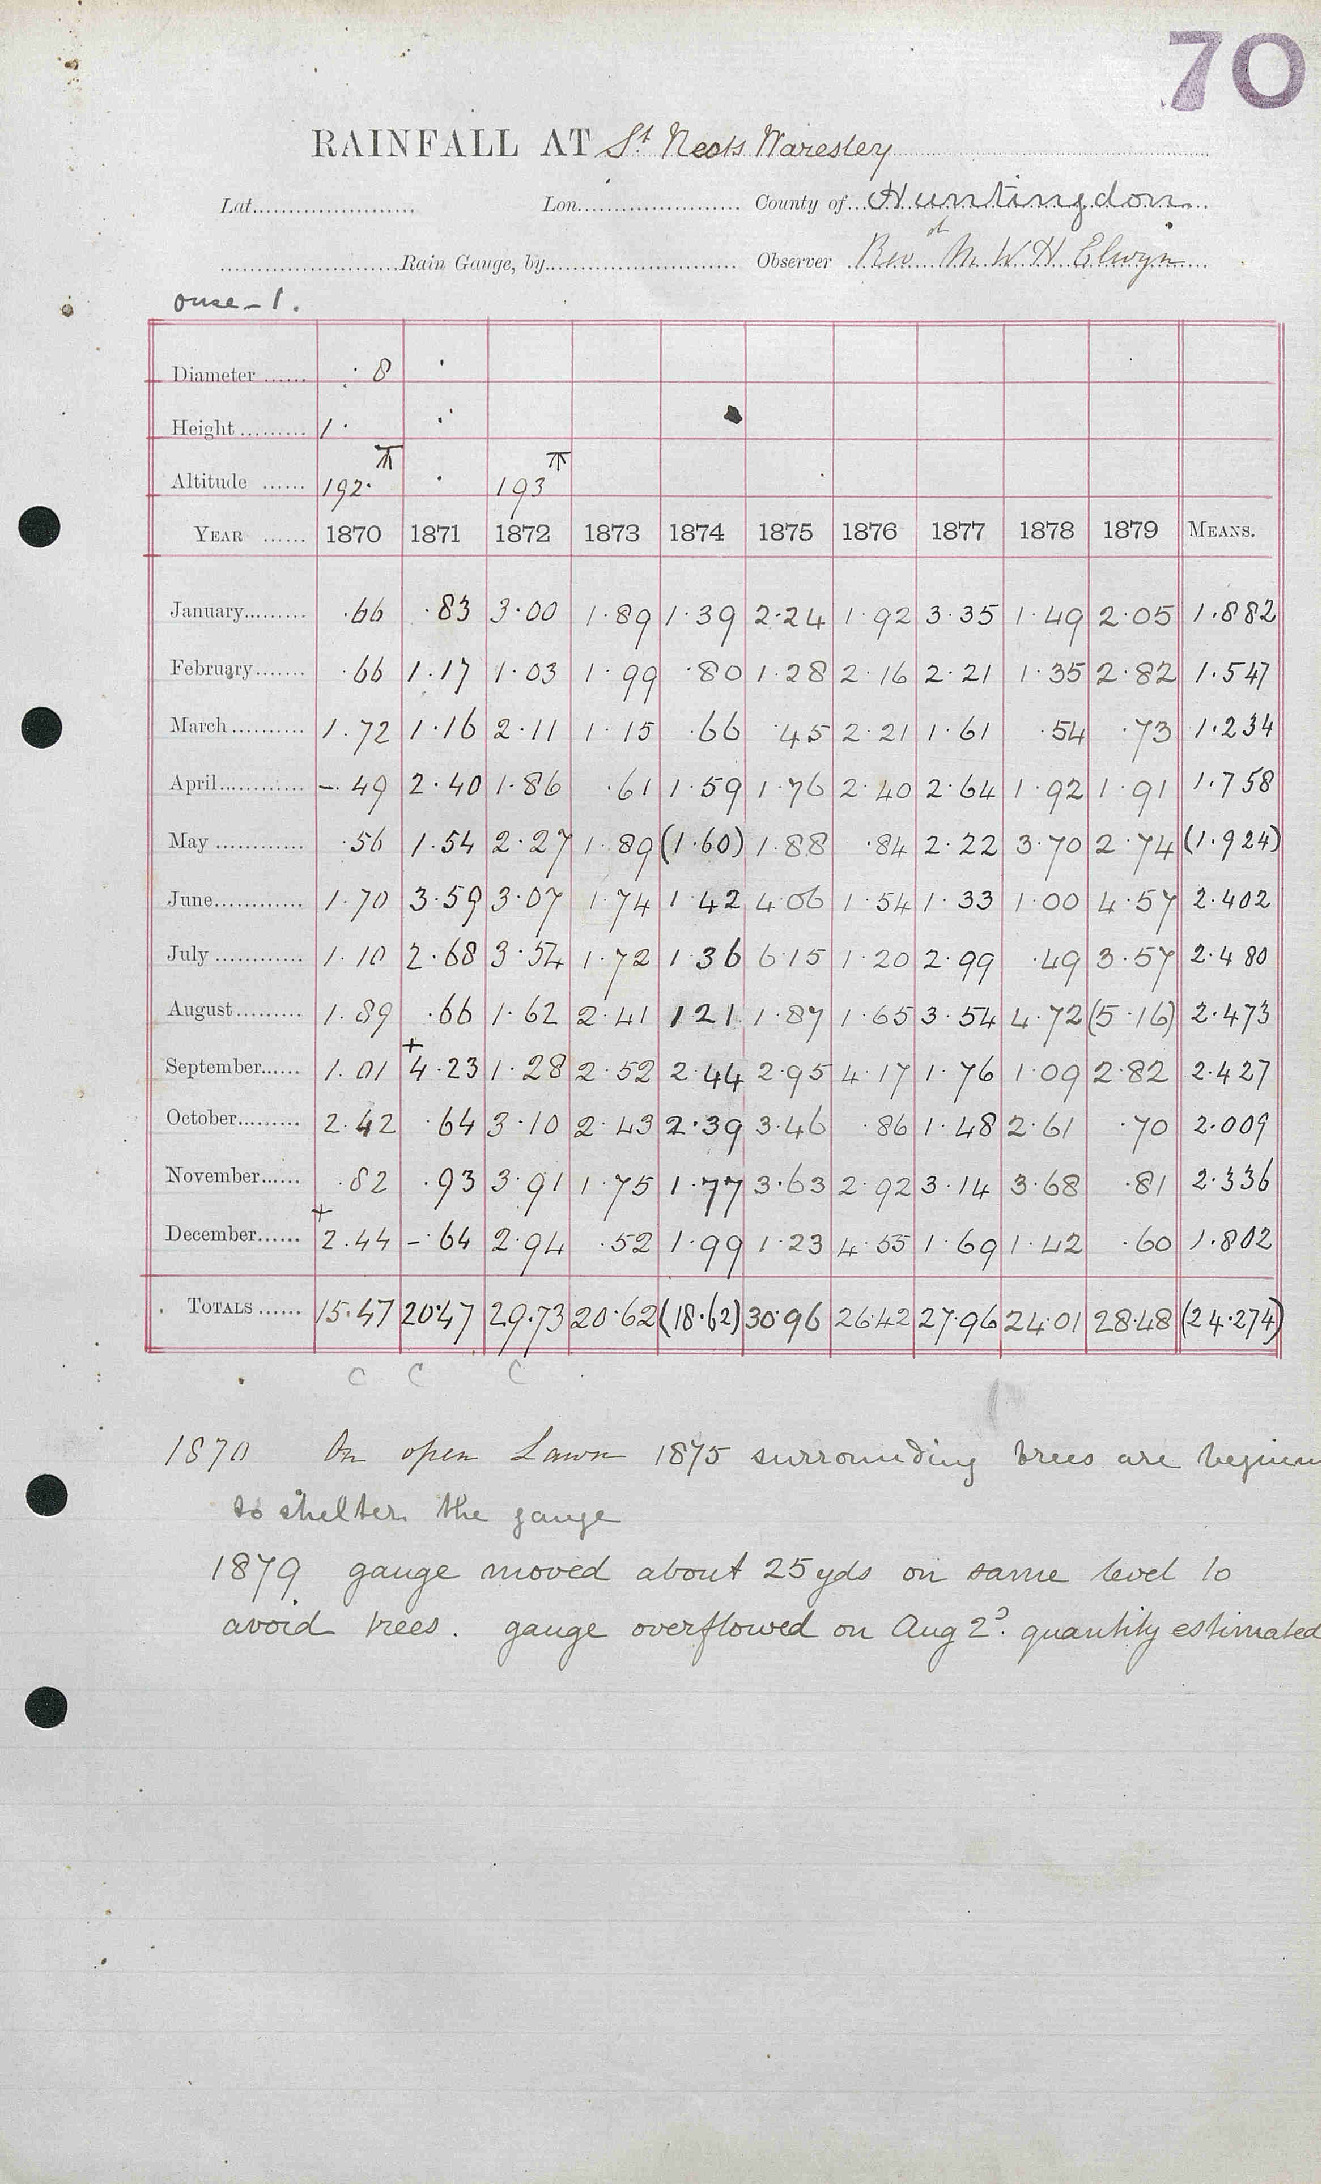 70
RAINFALL AT St Neots Waresley
Lat. Lon. County of Huntingdon.
Rain Gauge, by Observer Rev M. W H Elwyn
ouse - 1.
Diameter 8
Height 1.
Altitude 192. 193
YEAR 1870 1871 1872 1873 1874 1875 1876 1877 1878 1879 MEANS.
January .66 .83 3.00 1.89 1.39 2.24 1.92 3.35 1.49 2.05 1.882
February .66 1.17 1.03 1.99 .80 1.28 2.16 2.21 1.35 2.82 1.547
March 1.72 1.16 2.11 1.15 .66 .45 2.21 1.61 .54 .73 1.234
April -.49 2.40 1.86 .61 1.59 1.76 2.40 2.64 1.92 1.91 1.758
May .56 1.54 2.27 1.89 (1.60) 1.88 .84 2.22 3.70 2.74 (1.924)
June 1.70 3.59 3.07 1.74 1.42 4.06 1.54 1.33 1.00 4.57 2.402
July 1.10 2.68 3.54 1.72 1.36 6.15 1.20 2.99 .49 3.57 2.480
August 1.89 .66 1.62 2.41 1.21 1.87 1.65 3.54 4.72 (5.16) 2.473
September 1.01 +4.23 1.28 2.52 2.44 2.95 4.17 1.76 1.09 2.82 2.427
October 2.42 .64 3.10 2.43 2.39 3.46 .86 1.48 2.61 .70 2.009
November .82 .93 3.91 1.75 1.77 3.63 2.92 3.14 3.68 .81 2.336
December +2.44 -.64 2.94 .52 1.99 1.23 4.55 1.69 1.42 .60 1.802
TOTALS 15.47 20.47 29.73 20.62 (18.62) 30.96 26.42 27.96 24.01 28.48 (24.274)
C C C
1870 On open Lawn 1875 surrounding trees are
to shelter the gauge
1879 gauge moved about 25 yds on same level to
avoid trees. gauge overflowed on Aug 2d. quantity estimated